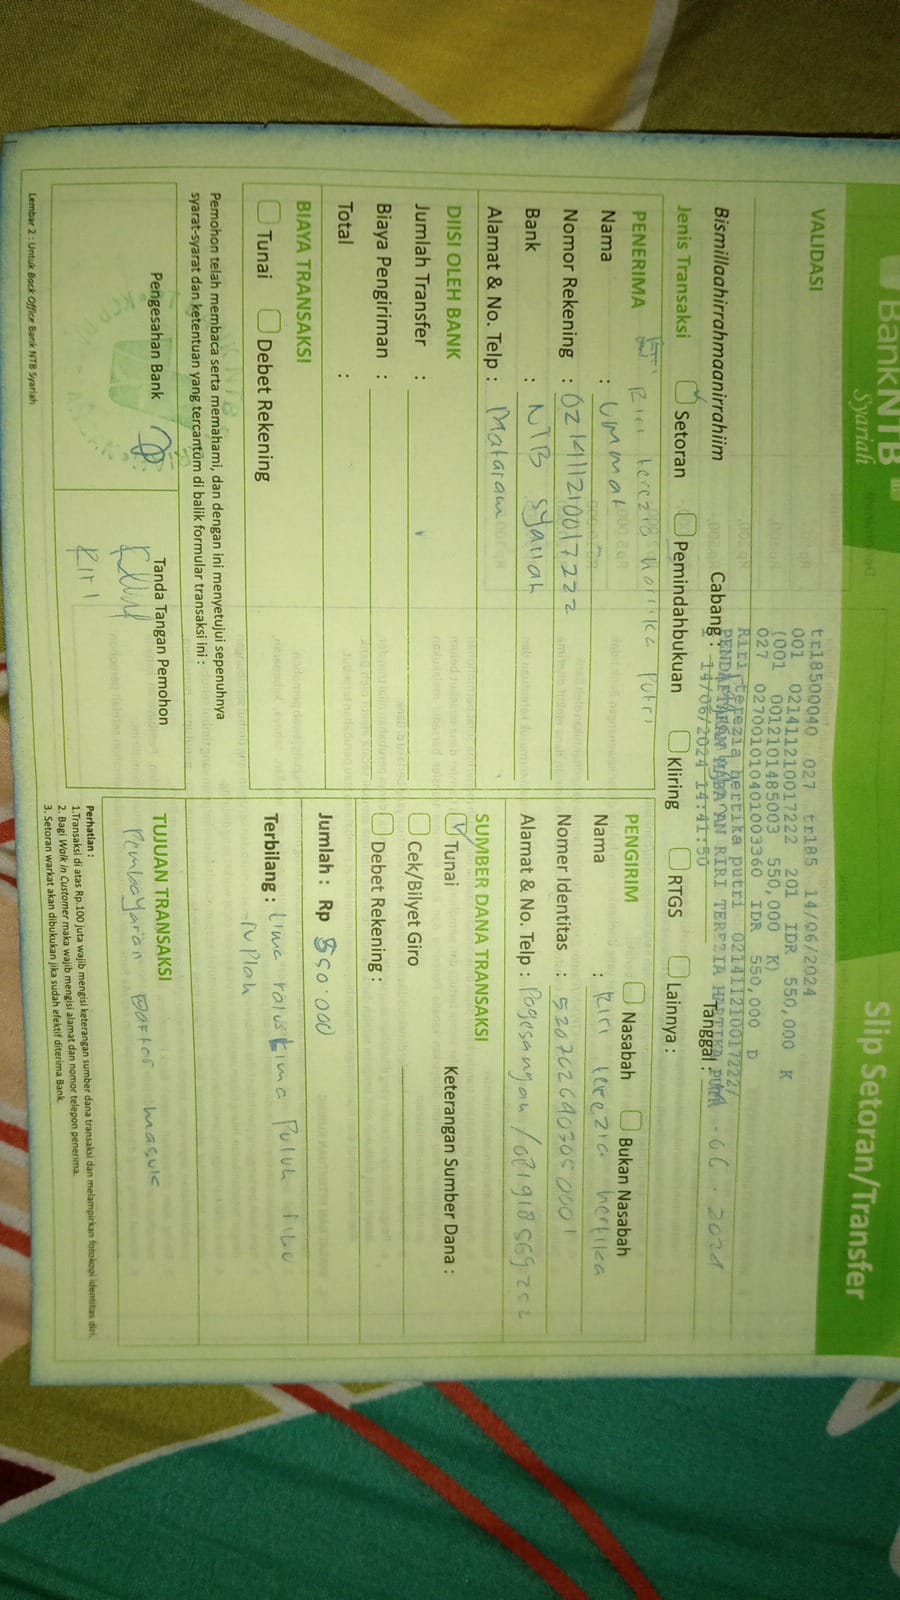 BankNTB
Syariah
Slip Setoran/Transfer
VALIDASI
tr18500040 027 tr185 14/06/2024
001 021411210017222 201 IDR 550,000 K
(001 0012101485003 550,000 K)
027 027001010401003360 IDR 550,000 D
Riri terezia hertika putri 021411210017222/
PENDAFTARAN MABA AN RIRI TEREZIA HARTIKA PUTRI
14/06/2024 14:41:50
Bismillaahirrahmaanirrahiim
Cabang :
Tanggal : - 06 - 2024
Jenis Transaksi
Setoran
Pemindahbukuan
Kliring
RTGS
Lainnya :
PENERIMA
Riri terezia hertika putri
Nama : Ummat
Nomor Rekening : 021411210017222
Bank : NTB Syariah
Alamat & No. Telp : Mataram
PENGIRIM
Nasabah
Bukan Nasabah
Nama : Riri terezia hertika
Nomer Identitas : 5207026903050001
Alamat & No. Telp : Pagesangan /
DIISI OLEH BANK
Jumlah Transfer :
Biaya Pengiriman :
Total :
SUMBER DANA TRANSAKSI
Tunai
Keterangan Sumber Dana :
Cek/Bilyet Giro
Debet Rekening :
BIAYA TRANSAKSI
Tunai
Debet Rekening
Jumlah : Rp 550.000
Terbilang : lima ratus lima puluh ribu
rupiah
Pemohon telah membaca serta memahami, dan dengan ini menyetujui sepenuhnya
syarat-syarat dan ketentuan yang tercantum di balik formular transaksi ini :
Pengesahan Bank
Tanda Tangan Pemohon
Riri
TUJUAN TRANSAKSI
Pembayaran Daftar masuk
Perhatian :
1.Transaksi di atas Rp.100 juta wajib mengisi keterangan sumber dana transaksi dan melampirkan fotokopi identitas diri.
2. Bagi Walk in Customer maka wajib mengisi alamat dan nomor telepon penerima.
3. Setoran warkat akan dibukukan jika sudah efektif diterima Bank.
Lembar 2 : Untuk Back Office Bank NTB Syariah